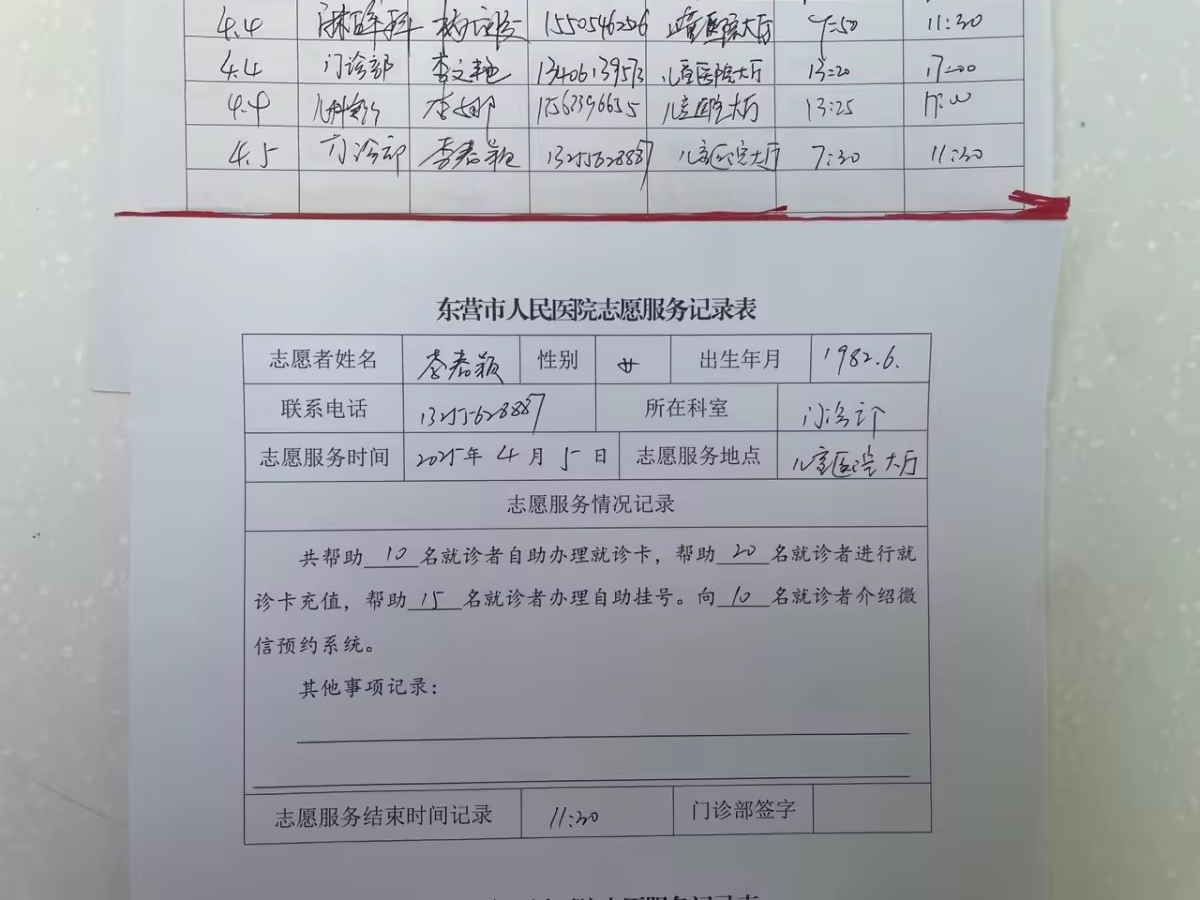 4.4 麻醉科 1550546256 儿童医院大厅 7:50 11:30
4.4 门诊部 李文艳 13406139573 儿童医院大厅 13:20 17:00
4.4 李娜 17562396655 儿童医院大厅 13:25 17:00
4.5 门诊部 李春颖 13255628887 儿童医院大厅 7:30 11:30
东营市人民医院志愿服务记录表
志愿者姓名 李春颖 性别 女 出生年月 1982.6.
联系电话 13255628887 所在科室 门诊部
志愿服务时间 2025年 4 月 5 日 志愿服务地点 儿童医院大厅
志愿服务情况记录
共帮助 10 名就诊者自助办理就诊卡，帮助 20 名就诊者进行就
诊卡充值，帮助 15 名就诊者办理自助挂号。向 10 名就诊者介绍微
信预约系统。
其他事项记录：
志愿服务结束时间记录 11:30 门诊部签字